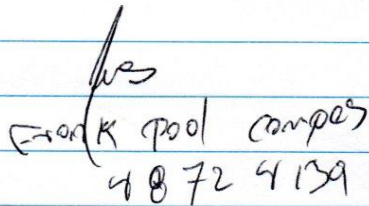 Frank Pool compas
4872 4139